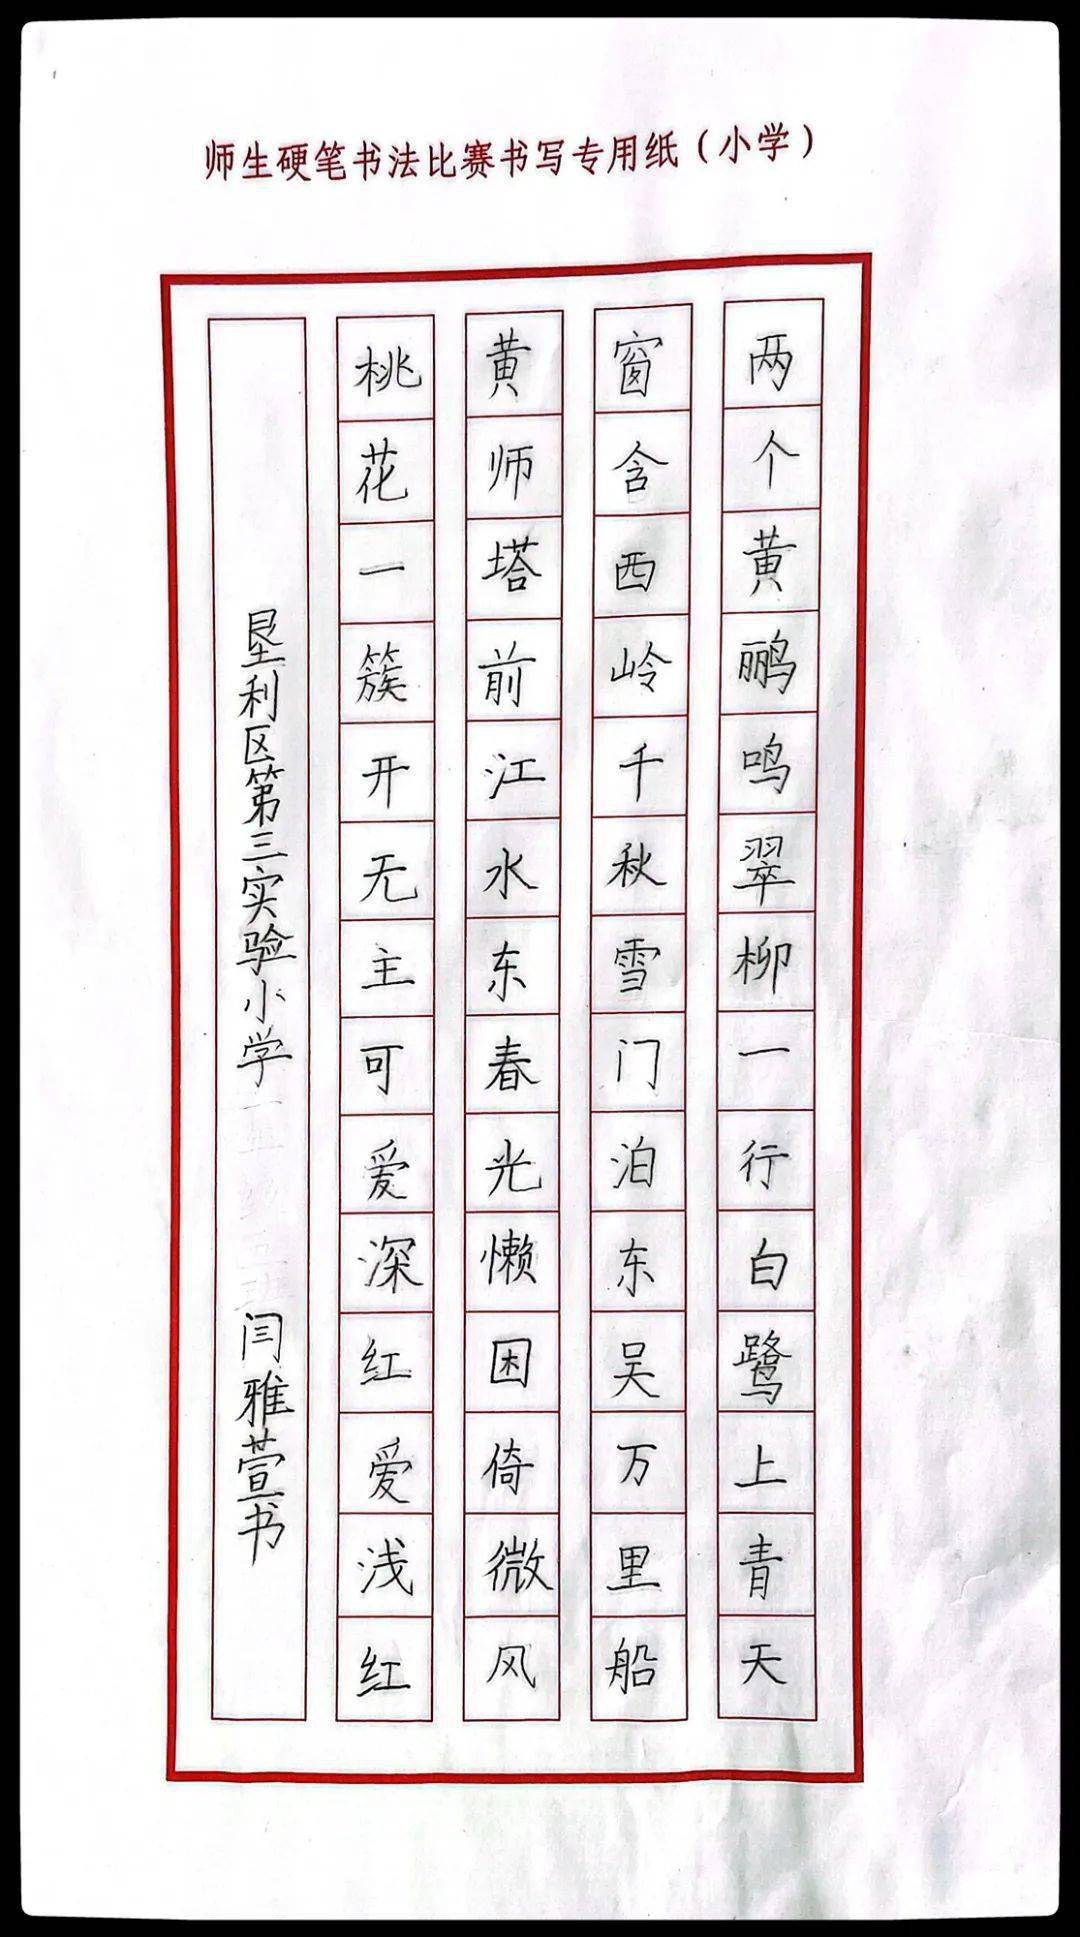 师生硬笔书法比赛书写专用纸（小学）
两个黄鹂鸣翠柳一行白鹭上青天
窗含西岭千秋雪门泊东吴万里船
黄师塔前江水东春光懒困倚微风
桃花一簇开无主可爱深红爱浅红
垦利区第三实验小学 闫雅萱书